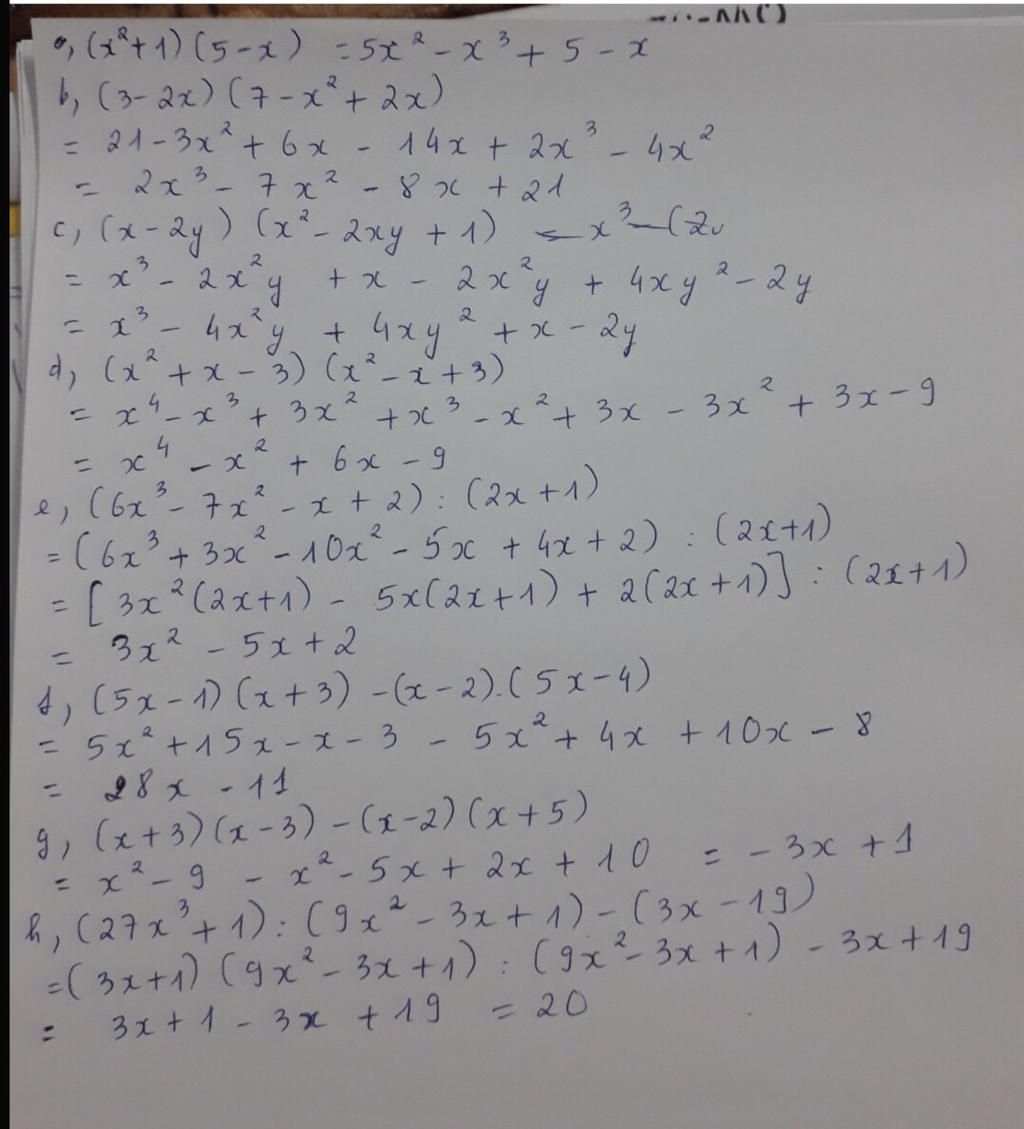 a, (x²+1)(5-x) = 5x² - x³ + 5 - x
b, (3-2x)(7-x²+2x)
= 21 - 3x² + 6x - 14x + 2x³ - 4x²
= 2x³ - 7x² - 8x + 21
c, (x-2y)(x²-2xy+1) = x³ - (2
= x³ - 2x²y + x - 2x²y + 4xy² - 2y
= x³ - 4x²y + 4xy² + x - 2y
d, (x²+x-3)(x²-x+3)
= x⁴ - x³ + 3x² + x³ - x² + 3x - 3x² + 3x - 9
= x⁴ - x² + 6x - 9
e, (6x³ - 7x² - x + 2) : (2x+1)
= (6x³ + 3x² - 10x² - 5x + 4x + 2) : (2x+1)
= [3x²(2x+1) - 5x(2x+1) + 2(2x+1)] : (2x+1)
= 3x² - 5x + 2
f, (5x-1)(x+3) - (x-2).(5x-4)
= 5x² + 15x - x - 3 - 5x² + 4x + 10x - 8
= 28x - 11
g, (x+3)(x-3) - (x-2)(x+5)
= x² - 9 - x² - 5x + 2x + 10 = -3x + 1
h, (27x³+1) : (9x² - 3x + 1) - (3x - 19)
= (3x+1)(9x² - 3x + 1) : (9x² - 3x + 1) - 3x + 19
= 3x + 1 - 3x + 19 = 20